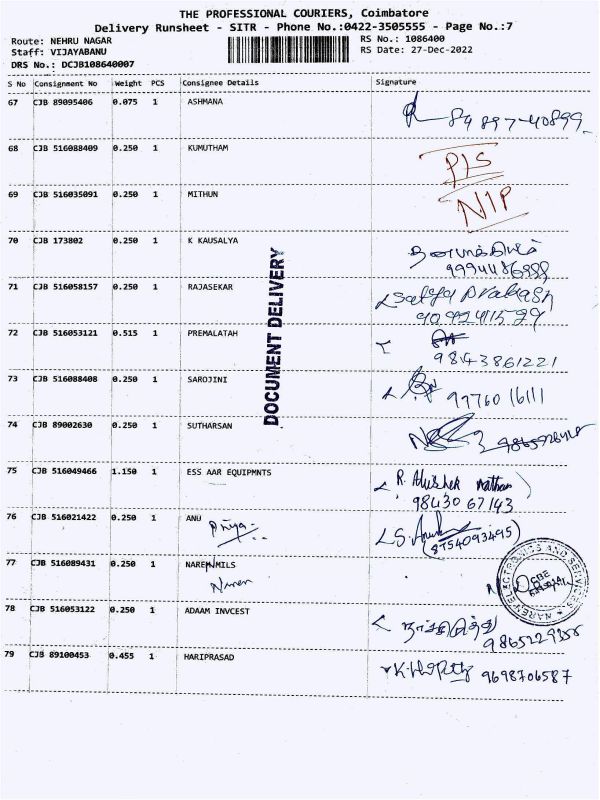 THE PROFESSIONAL COURIERS, Coimbatore
Delivery Runsheet - SITR - Phone No.:0422-3505555 - Page No.:7
Route: NEHRU NAGAR
RS No.: 1086400
Staff: VIJAYABANU
RS Date: 27-Dec-2022
DRS No.: DCJB108640007
S No Consignment No Weight PCS Consignee Details Signature
67 CJB 89095406 0.075 1 ASHMANA
84 897-40899
68 CJB 516088409 0.250 1 KUMUTHAM
PLS
69 CJB 516035091 0.250 1 MITHUN
NIP
70 CJB 173802 0.250 1 K KAUSALYA
71 CJB 516058157 0.250 1 RAJASEKAR
Satya Prakash
72 CJB 516053121 0.515 1 PREMALATAH
98438 61221
73 CJB 516088408 0.250 1 SAROJINI
97760 16111
74 CJB 89002630 0.250 1 SUTHARSAN
75 CJB 516049466 1.150 1 ESS AAR EQUIPMNTS
98430 67143
76 CJB 516021422 0.250 1 ANU
Priya
(8754093495)
77 CJB 516089431 0.250 1 NAREN MILS
Naren
NAREN ELECTRONICS AND SERVICES
CBE
78 CJB 516053122 0.250 1 ADAAM INVCEST
79 CJB 89100453 0.455 1 HARIPRASAD
9698706587
DOCUMENT DELIVERY